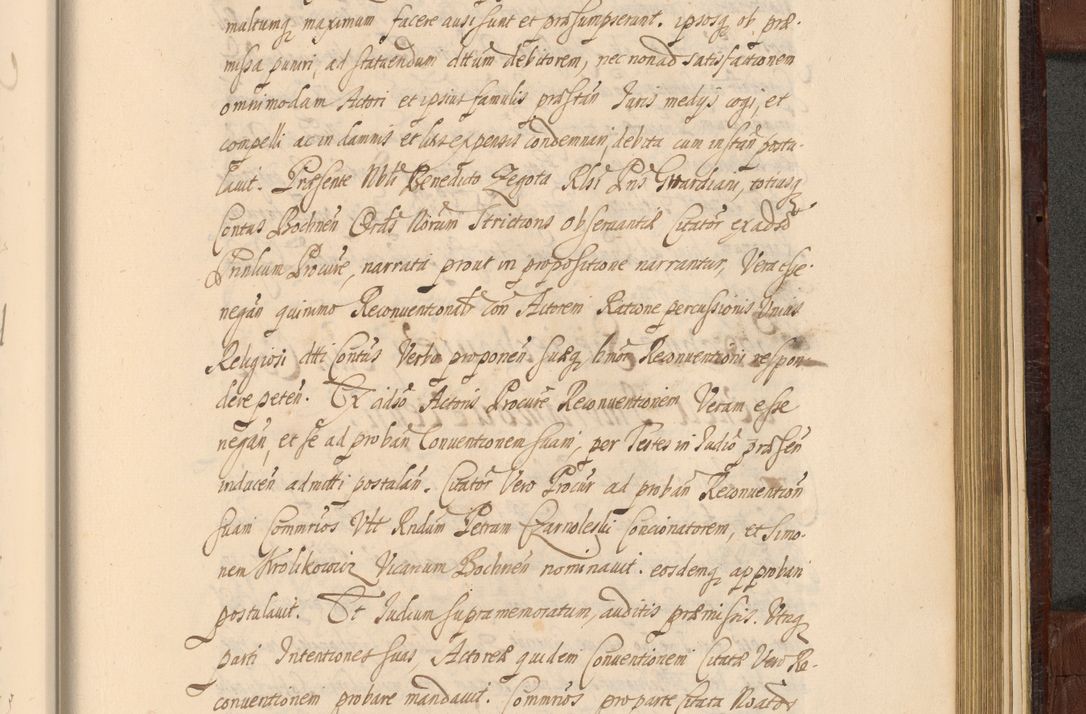 multumq maximum facere ausi sunt et præsumpserunt. ipsosq ob præ-
missa puniri, ad statuendum dttum debitorem, nec non ad satisfactionem
omnimodam Actori et ipsius famulis præstan Juris medys cogi, et
compelli ac in damnis et litis expensis condemnari, debita cum instan postu-
lauit. Præsente Nbli Benedicto Zegota Rlgi Pris Gwardiani, totiusq
Contus Bochnen Ordis Norum Strictioris Obseruantiæ Citator ex adso
Prnlium Procure, narrata prout in propositione narrantur, Vera esse
negan quinimo Reconuentionab con Actorem Ratione percussionis Vnius
Religiosi dtti Contus Verbo proponen suæq limor Reconuentioni respon-
dere peten. Ex adso Actoris Procure Reconuentionem Veram esse
negan, et se ad proban Conuentionem suam, per Testes in Judio præsen
inducen admitti postulan. Citator Vero Procur ad proban Reconuention
suam Commrios Vtt Rndum Petrum Czarnoleski Concionatorem, et Simo-
nem Krolikowicz Vicarium Bochnen nominauit. eosdemq approbari
postulauit. Et Judium supramemoratum, auditis præmissis. Vtriq
parti Intentiones suas Actoreæ quidem Conuentionem Citatæ Vero Re-
conuentionem probare mandauit. Commrios pro parte Citata Noatos